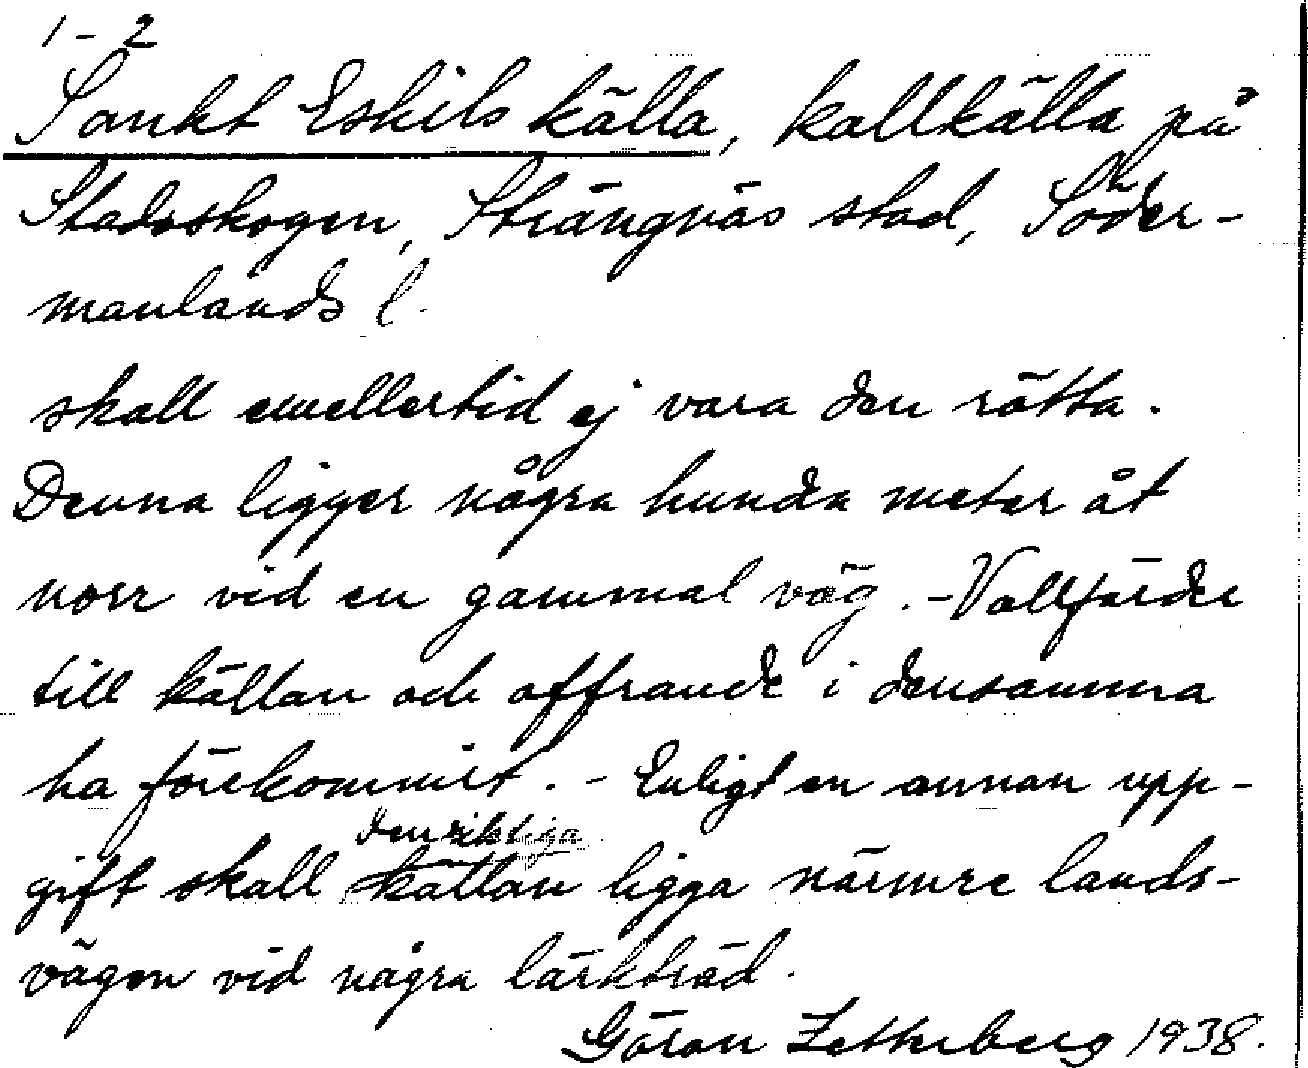 1-2
Sankt Eskils källa, kallkälla på
Stadsskogen, Strängnäs stad, Söder-
manlands l.
skall emellertid ej vara den rätta.
Denna ligger några hunda meter åt
norr vid en gammal väg. - Vallfärder
till källan och offrande i densamma
ha förekommit. - Enligt en annan upp-
den riktiga
gift skall källan ligga närmre lands-
vägen vid några lärkträd.
Göran Zetterberg 1938.